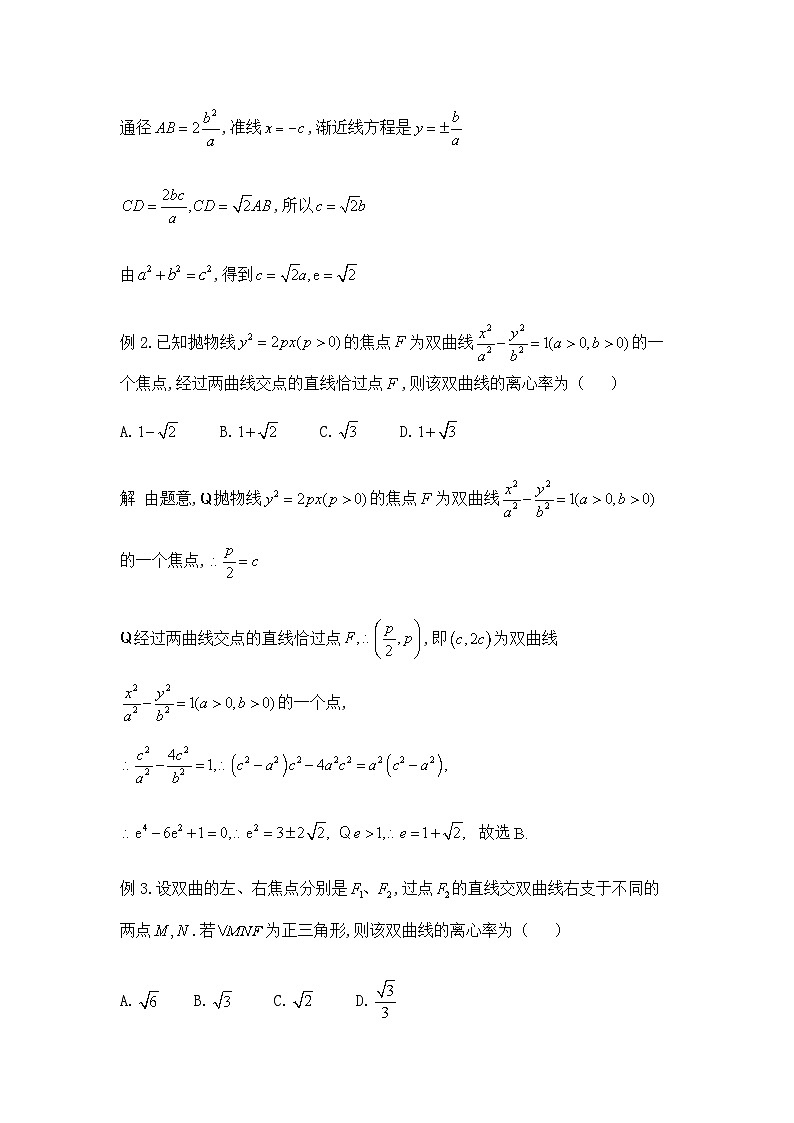 通径 AB = 2 b²/a ,准线 x = −c ,渐近线方程是 y = ± b/a
CD = 2bc/a , CD = √2 AB ,所以 c = √2 b
由 a² + b² = c² ,得到 c = √2 a, e = √2
例 2.已知抛物线 y² = 2px(p > 0) 的焦点 F 为双曲线 x²/a² − y²/b² = 1(a > 0, b > 0) 的一
个焦点,经过两曲线交点的直线恰过点 F ,则该双曲线的离心率为( )
A. 1− √2 B. 1+ √2 C. √3 D. 1+ √3
解 由题意,Q抛物线 y² = 2px(p > 0) 的焦点 F 为双曲线 x²/a² − y²/b² = 1(a > 0, b > 0)
的一个焦点,∴ p/2 = c
Q经过两曲线交点的直线恰过点 F,∴ (p/2, p) ,即 (c, 2c) 为双曲线
x²/a² − y²/b² = 1(a > 0, b > 0) 的一个点,
∴ c²/a² − 4c²/b² = 1,∴ (c² − a²)c² − 4a²c² = a²(c² − a²),
∴ e⁴ − 6e² + 1 = 0,∴ e² = 3 ± 2√2, Q e > 1,∴ e = 1 + √2, 故选 B.
例 3.设双曲的左、右焦点分别是 F₁、F₂ ,过点 F₂ 的直线交双曲线右支于不同的
两点 M , N .若 VMNF 为正三角形,则该双曲线的离心率为( )
A. √6 B. √3 C. √2 D. √3/3